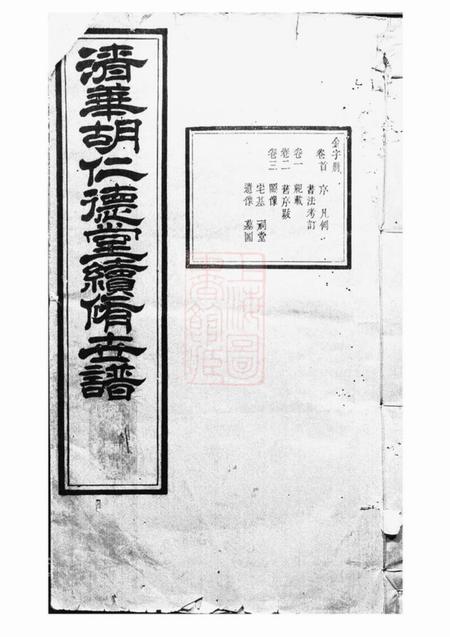 清華胡仁德堂續修世譜
金字冊
卷首 序 凡例
書法考訂
卷一 親藏
卷二 舊序跋
卷三 願像
宅基 祠堂
遺像 墓圖
上海圖書館藏